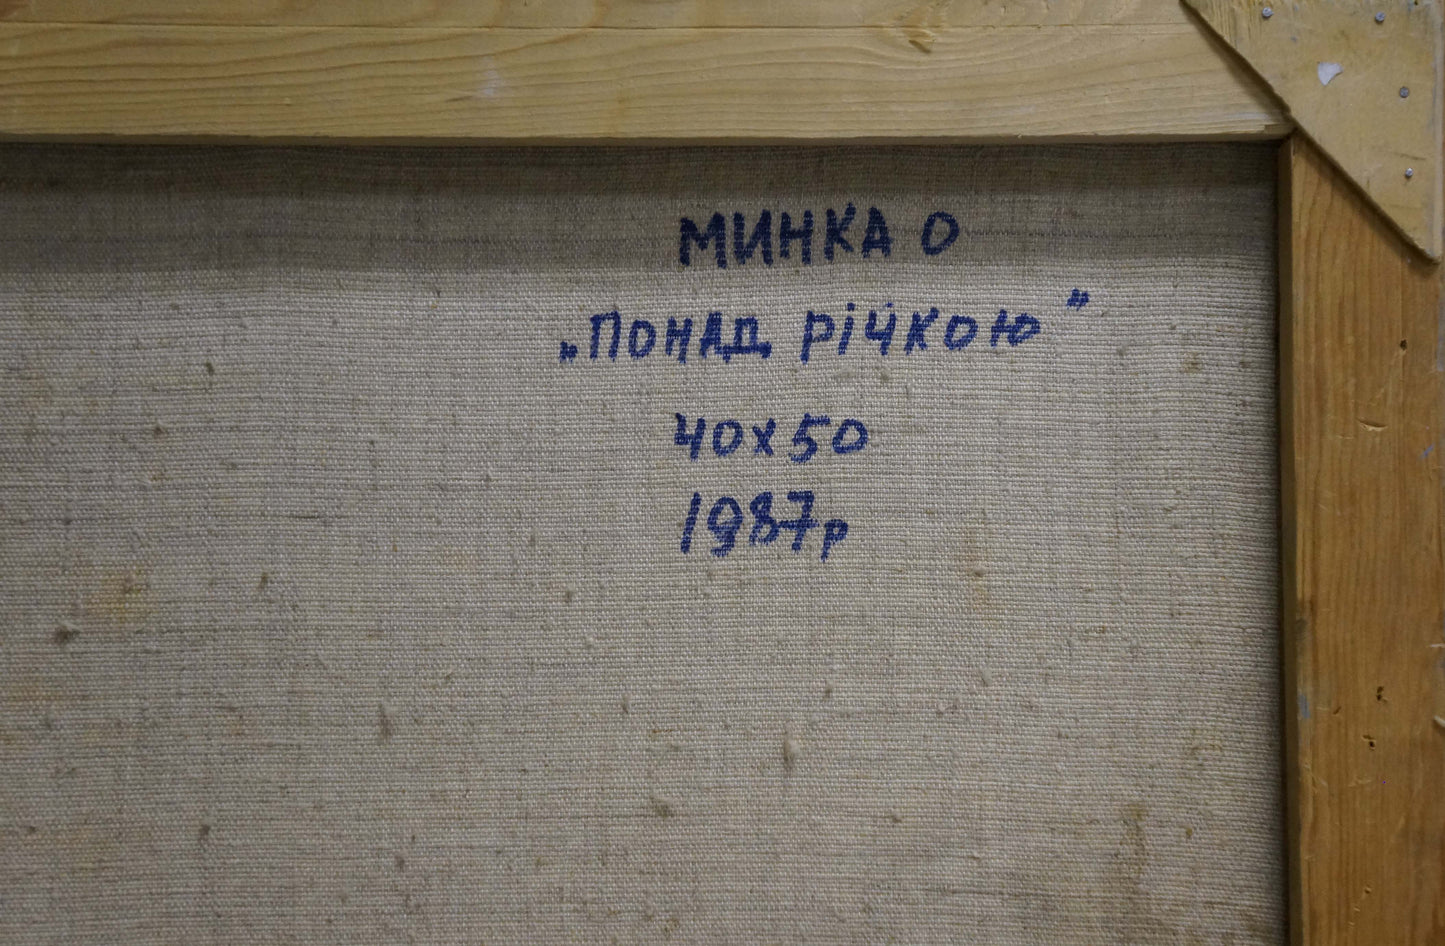 МИНКА О
„ПОНАД РІЧКОЮ”
40х50
1987р